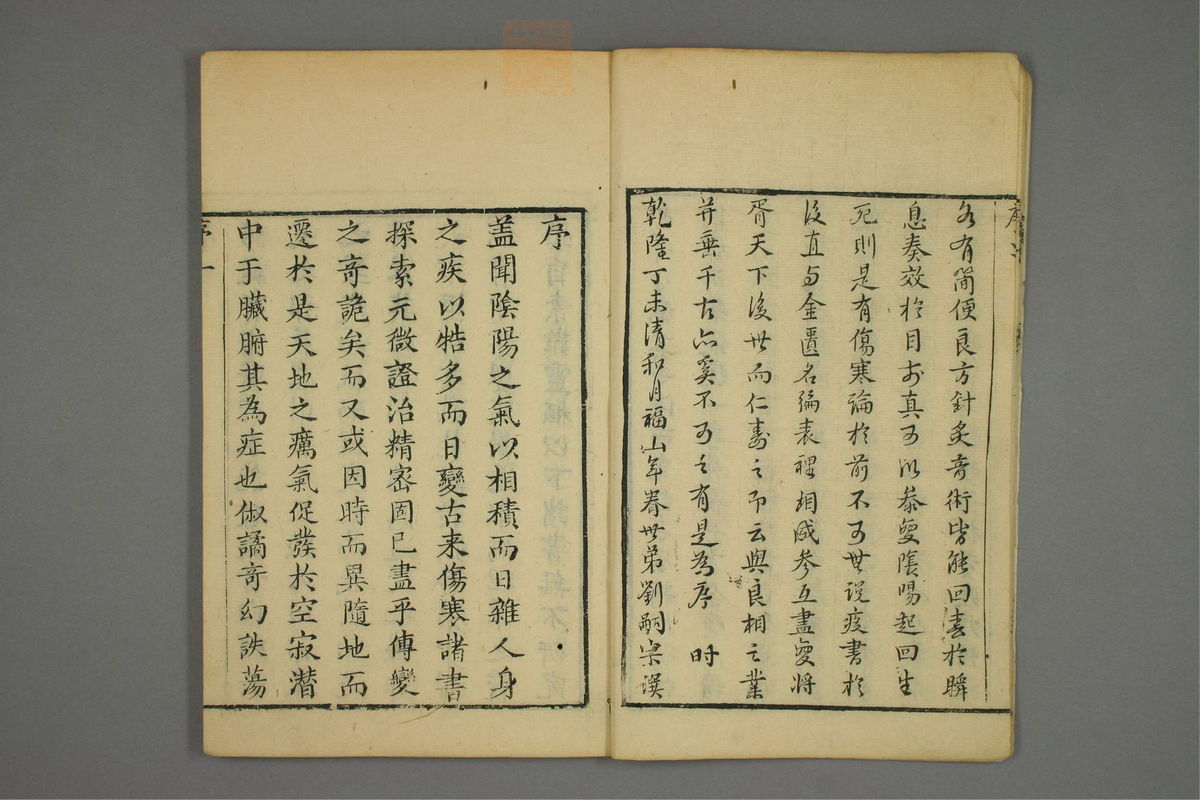 各有簡便良方針灸奇術皆能回春於瞬
息奏效於目前真可以參變陰陽起回生
死則是有傷寒論於前不可無說疫書於
後直與金匱名編表裡相成參互盡變將
胥天下後世而仁壽之所云與良相之業
并垂千古亦奚不可之有是為序 时
乾隆丁未清和月福山年眷世弟劉嗣宗譔
序
蓋聞陰陽之氣以相積而日雜人身
之疾以牿多而日變古来傷寒諸書
探索元微證治精密固已盡乎傳變
之奇詭矣而又或因時而異隨地而
遷於是天地之癘氣促發於空寂潜
中于臟腑其為症也俶譎奇幻詄蕩
序一